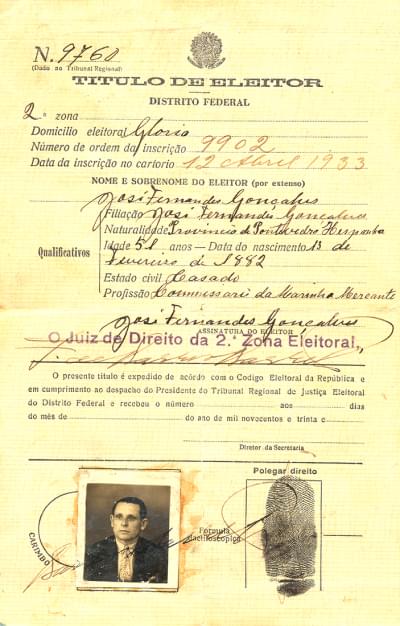 N. 9760
(Dado no Tribunal Regional)
TITULO DE ELEITOR
DISTRITO FEDERAL
2ª zona
Domicilio eleitoral Gloria
Número de ordem da inscrição 9902
Data da inscrição no cartorio 12 Abril 1933
NOME E SOBRENOME DO ELEITOR (por extenso)
José Fernandes Gonçalves
Filiação José Fernandes Gonçalves
Naturalidade Provincia de Pontevedra Hespanha
Qualificativos
Idade 51 anos — Data do nascimento 13 de
Fevereiro de 1882
Estado civil Casado
Profissão Commissario da Marinha Mercante
José Fernandes Gonçalves
ASSINATURA DO ELEITOR
O Juiz de Direito da 2.ª Zona Eleitoral,
O presente título é expedido de acôrdo com o Codigo Eleitoral da República e
em cumprimento ao despacho do Presidente do Tribunal Regional de Justiça Eleitoral
do Distrito Federal e recebeu o número aos dias
do mês de do ano de mil novecentos e trinta e
Diretor da Secretaria
Polegar direito
CARIMBO
Fórmula
dactiloscópica